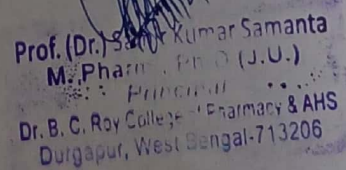 Prof. (Dr.) Kumar Samanta
M. Pharm., Ph.D (J.U.)
Principal
Dr. B. C. Roy College of Pharmacy & AHS
Durgapur, West Bengal-713206